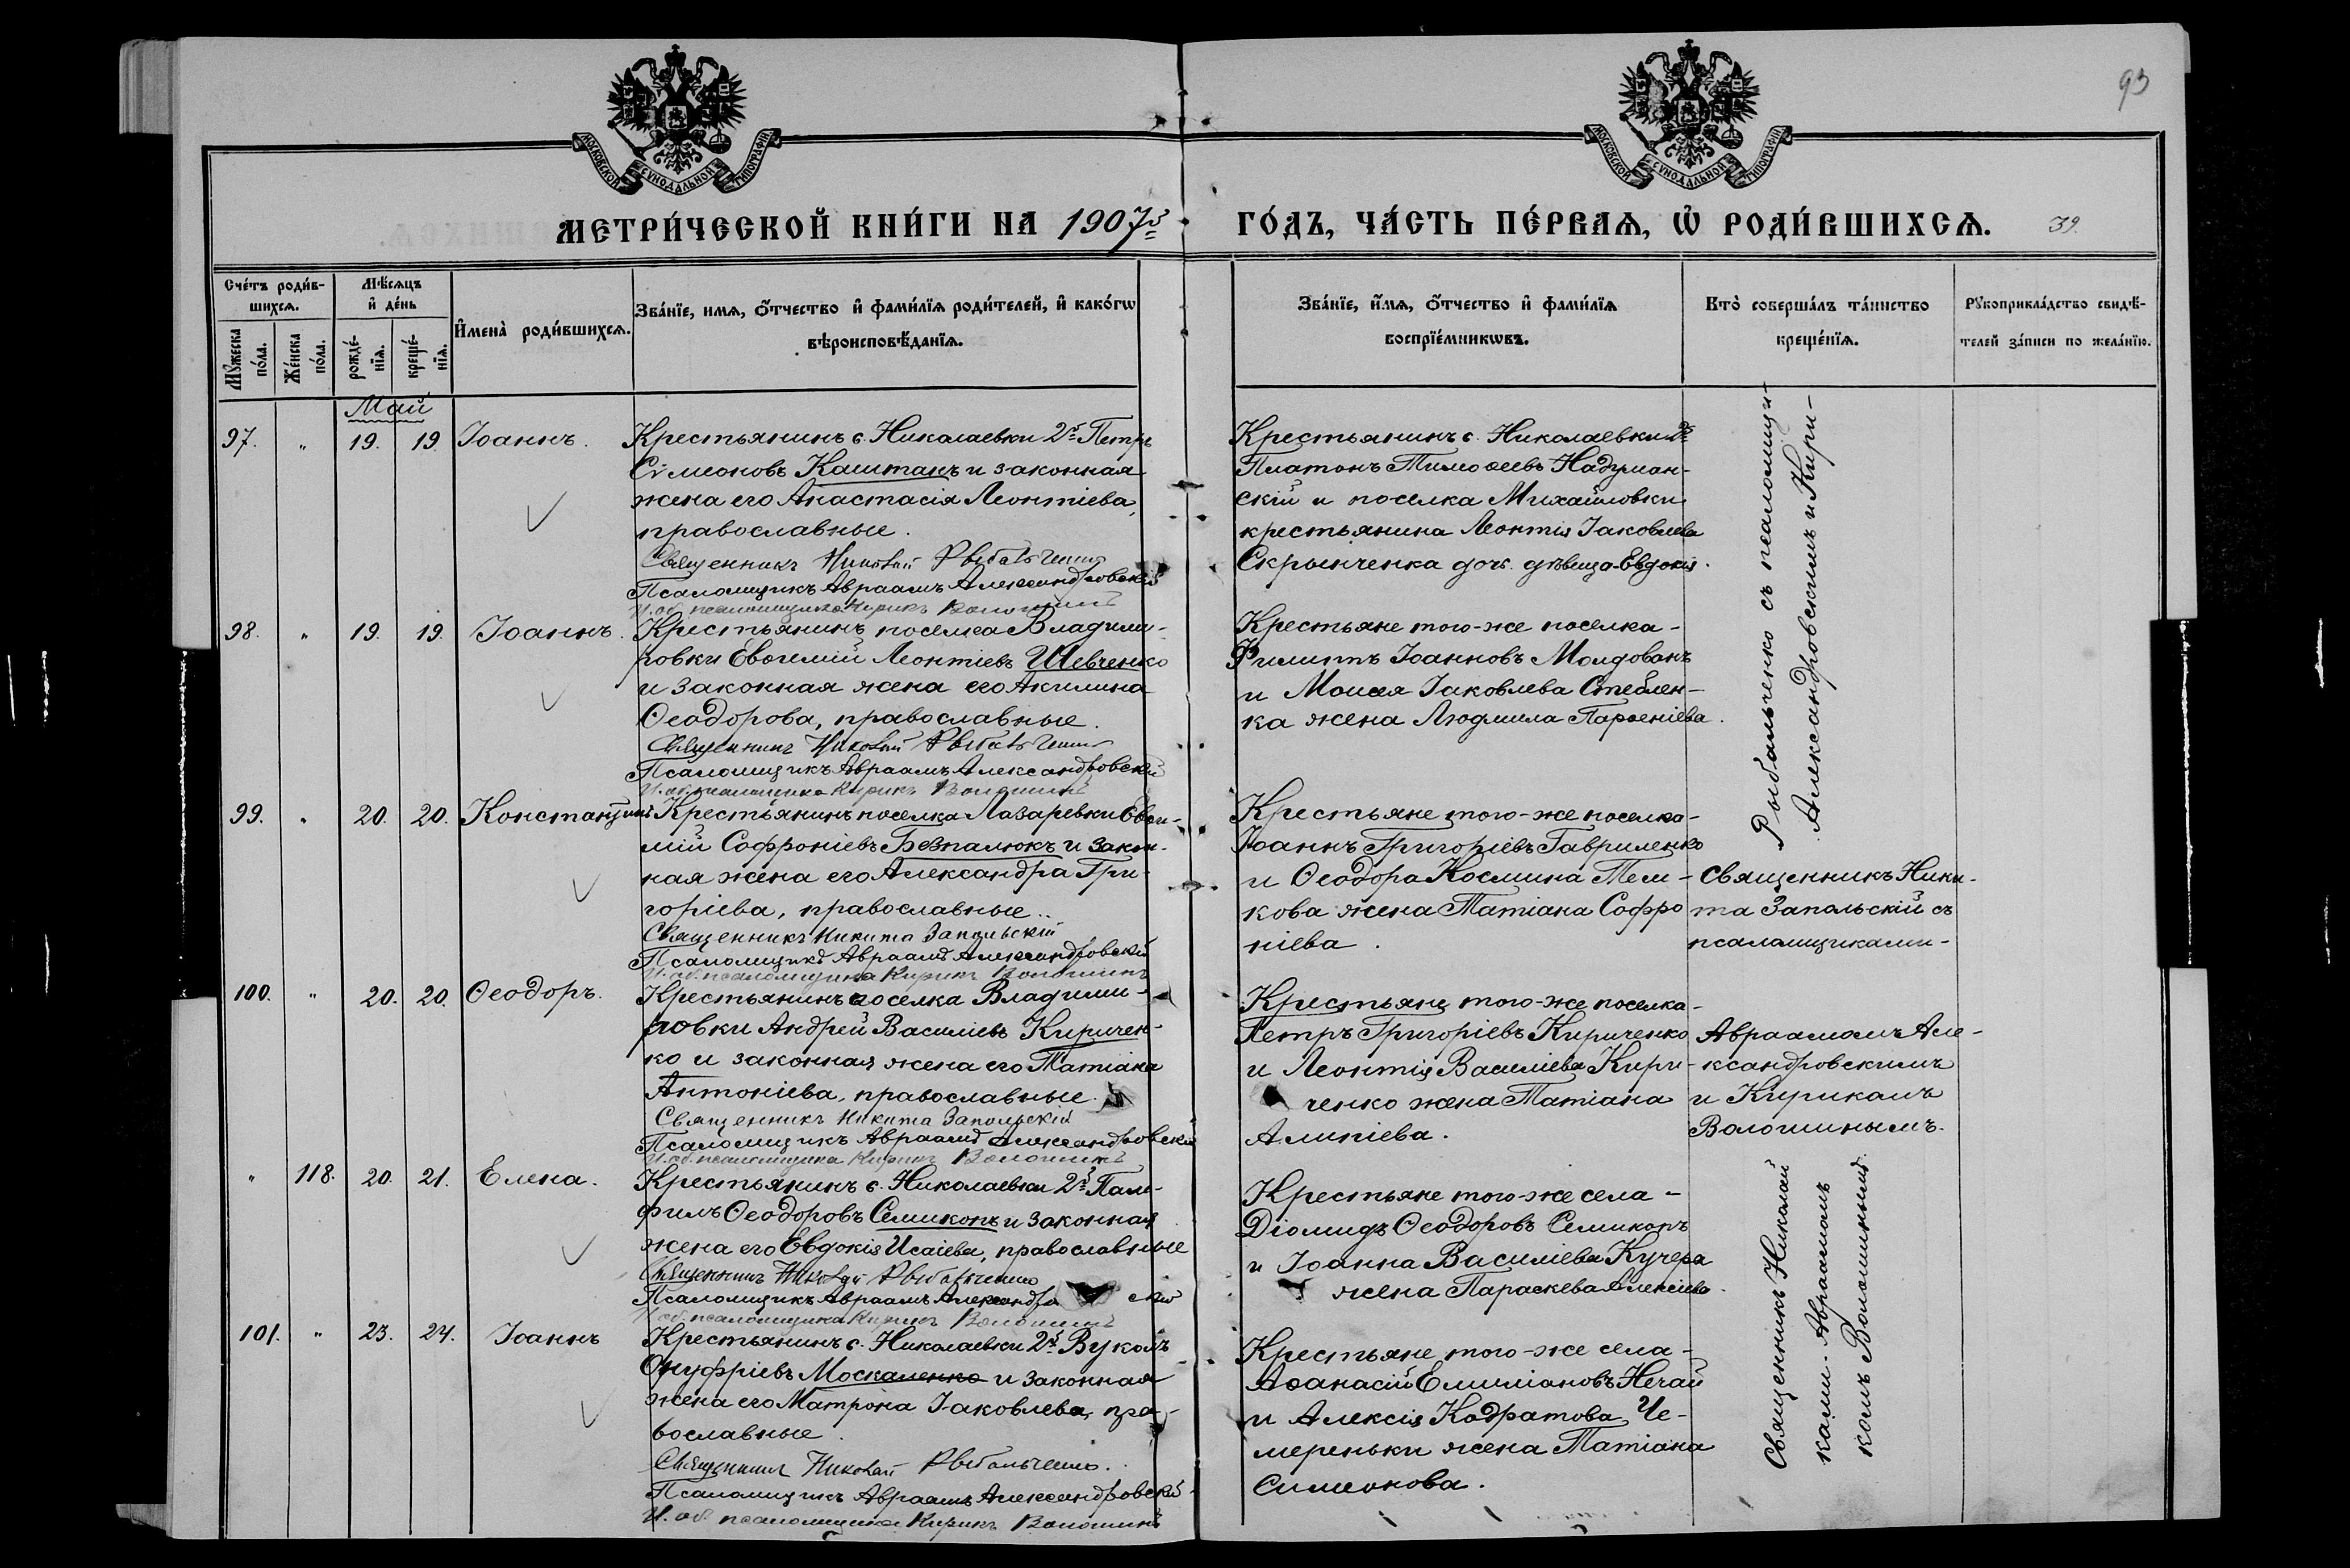 93
МОСКОВСКОЙ СѴНОДАЛЬНОЙ ТИПОГРАФІИ
МОСКОВСКОЙ СѴНОДАЛЬНОЙ ТИПОГРАФІИ
МЕТРИ́ЧЕСКОЙ КНИ́ГИ НА 1907й
ГО́ДЪ, ЧА́СТЬ ПЕ́РВАѦ, Ѡ҆ РОДИ́ВШИХСѦ. 39.
Сче́тъ роди́в-
шихсѧ.
Мꙋ́жеска по́ла.
Же́нска по́ла.
Мѣ́сѧцъ и҆ де́нь
рожде́-нїѧ.
креще́-нїѧ.
И҆мена̀ роди́вшихсѧ.
Зва́нїе, имѧ, ѻ҆́тчество и҆ фами́лїѧ роди́телей, и҆ како́гѡ
вѣроисповѣ́данїѧ.
Зва́нїе, и҆́мѧ, ѻ҆́тчество и҆ фами́лїѧ
воспрїе́мникѡвъ.
Кто̀ соверша́лъ та́инство
креще́нїѧ.
Рꙋкоприкла́дство свидѣ́-
телей за́писи по жела́нїю.
Май
97. " 19. 19. Іоаннъ.
Крестьянинъ с. Николаевки 2й Петръ
Сѵмеоновъ Каштанъ и законная
жена его Анастасія Леонтіева,
православные.
Священникъ Николай Рыбальченко
Псаломщикъ Авраамъ Александровскій
И. об. псаломщика Кирикъ Волошинъ
Крестьянинъ с. Николаевки 2й
Платонъ Тимоѳеевъ Надуман-
скій и поселка Михайловки
крестьянина Леонтія Іаковлева
Скрынченка дочь девица Евдокія.
98. " 19. 19. Іоаннъ.
Крестьянинъ поселка Владими-
ровки Евѳимій Леонтіевъ Шевченко
и законная жена его Акилина
Ѳеодорова, православные.
Священникъ Николай Рыбальченко
Псаломщикъ Авраамъ Александровскій
И. об. псаломщика Кирикъ Волошинъ
Крестьяне того-же поселка-
Филиппъ Іоанновъ Молдованъ
и Моисея Іаковлева Стеблен-
ка жена Людмила Парѳеніева.
Рыбальченко съ псаломщи-
Александровскимъ и Кири-
99. " 20. 20. Константинъ
Крестьянинъ поселка Лазаревки Евѳи-
мій Софроніевъ Безпалюкъ и закон-
ная жена его Александра Гри-
горіева, православные..
Священникъ Никита Запольскій
Псаломщикъ Авраамъ Александровскій
И. об. псаломщика Кирикъ Волошинъ
Крестьяне того-же поселка-
Іоаннъ Григоріевъ Гавриленко
и Ѳеодора Космина Тем-
кова жена Татіана Софро
ніева.
Священникъ Ники-
та Запольскій съ
псаломщиками-
100. " 20. 20. Ѳеодоръ.
Крестьянинъ поселка Владими-
ровки Андрей Василіевъ Киричен-
ко и законная жена его Татіана
Антоніева, православные.
Священникъ Никита Запольскій
Псаломщикъ Авраамъ Александровскій
И. об. псаломщика Кирикъ Волошинъ
Крестьяне того-же поселка-
Петръ Григоріевъ Кириченко
и Леонтія Василіева Кири-
ченко жена Татіана
Алипіева.
Авраамомъ Але-
ксандровскимъ
и Кирикомъ
Волошинымъ.
" 118. 20. 21. Елена.
Крестьянинъ с. Николаевки 2й Пам-
филъ Ѳеодоровъ Семикопъ и законная
жена его Евдокія Исаіева, православные
Священникъ Николай Рыбальченко
Псаломщикъ Авраамъ Александро скій
И. об. псаломщика Кирикъ Волошинъ
Крестьяне того-же села-
Діомидъ Ѳеодоровъ Семикопъ
и Іоанна Василіева Кучера
жена Параскева Алексіева.
101. " 23. 24. Іоаннъ
Крестьянинъ с. Николаевки 2й Вуколъ
Онуфріевъ Москаленко и законная
жена его Матрона Іаковлева, пра-
вославные.
Священникъ Николай Рыбальченко.
Псаломщикъ Авраамъ Александровскій
И. об. псаломщика Кирикъ Волошинъ
Крестьяне того-же села-
Аѳанасій Емиліановъ Нечай
и Алексія Кодратова Че-
мереньки жена Татіана
Симеонова.
Священникъ Николай
ками-Авраамомъ
комъ Волошинымъ.